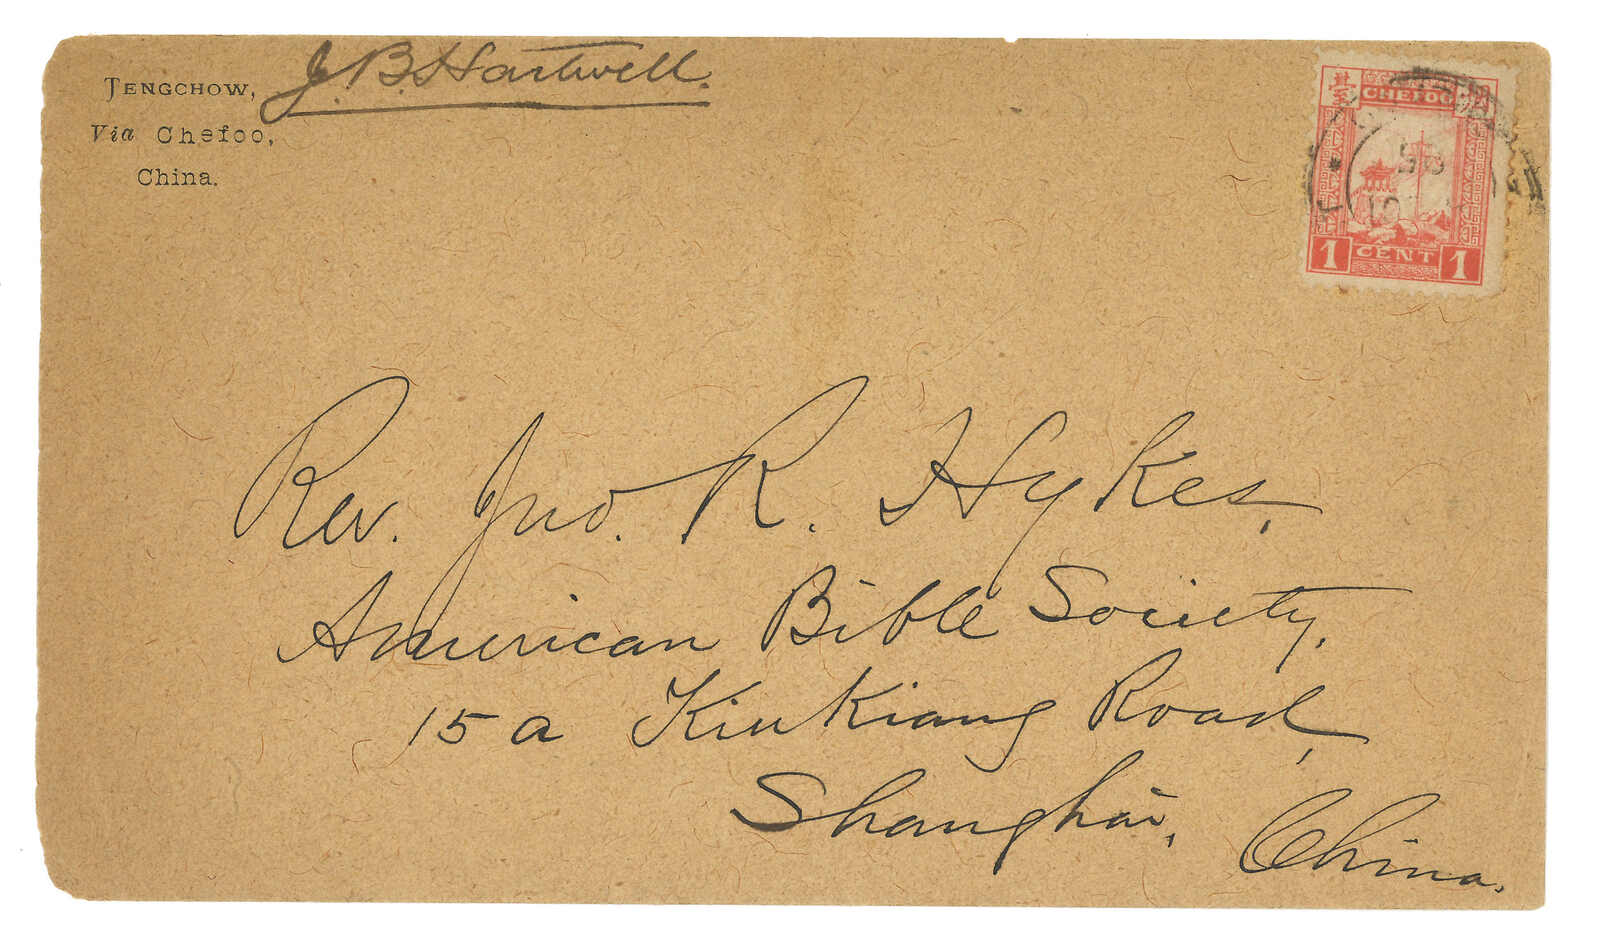 TENGCHOW,
Via Chefoo,
China.
J. B. Hartwell.
CHEFOO
1 CENT 1
Rev. Jno. R. Hykes,
American Bible Society,
15 a Kiukiang Road,
Shanghai,
China.